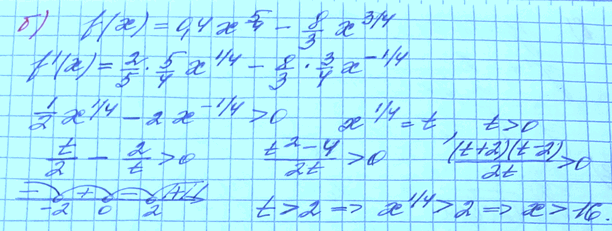 б) f(x) = 0,4 x^{5/4} - 8/3 x^{3/4}
f'(x) = 2/5 · 5/4 x^{1/4} - 8/3 · 3/4 x^{-1/4}
1/2 x^{1/4} - 2 x^{-1/4} > 0 x^{1/4} = t t > 0
t/2 - 2/t > 0 (t² - 4)/(2t) > 0 ((t+2)(t-2))/(2t) > 0
- + - +
-2 0 2 t > 2 => x^{1/4} > 2 => x > 16.